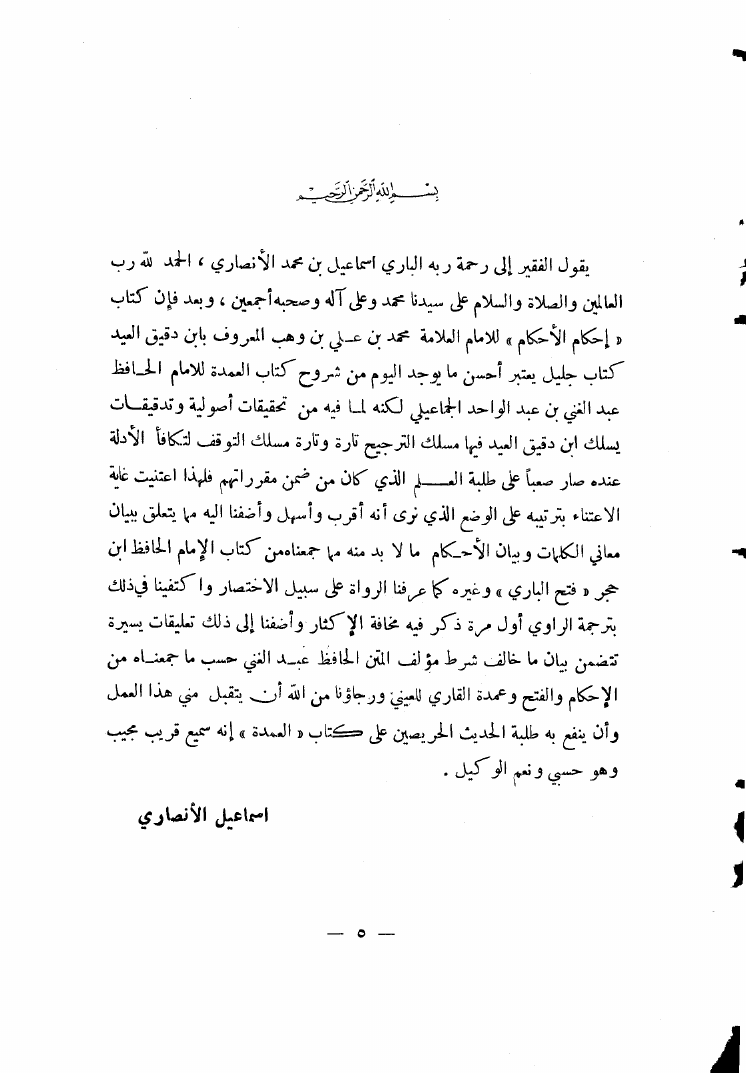 بسم الله الرحمن الرحيم
يقول الفقير إلى رحمة ربه الباري اسماعيل بن محمد الأنصاري ، الحمد لله رب
العالمين والصلاة والسلام على سيدنا محمد وعلى آله وصحبه أجمعين ، وبعد فإن كتاب
« إحكام الأحكام » للامام العلامة محمد بن عـلي بن وهب المعروف بابن دقيق العيد
كتاب جليل يعتبر أحسن ما يوجد اليوم من شروح كتاب العمدة للامام الحـافظ
عبد الغني بن عبد الواحد الجماعيلي لكنه لمـا فيه من تحقيقات أصولية وتدقيقـات
يسلك ابن دقيق العيد فيها مسلك الترجيح تارة وتارة مسلك التوقف لتكافأ الأدلة
عنده صار صعباً على طلبة العـــلم الذي كان من ضمن مقرراتهم فلهذا اعتنيت غاية
الاعتناء بترتيبه على الوضع الذي نرى أنه أقرب وأسهل وأضفنا اليه مما يتعلق ببيان
معاني الكلمات وبيان الأحـكام ما لا بد منه مما جمعناه من كتاب الإمام الحافظ ابن
حجر « فتح الباري » وغيره كما عرفنا الرواة على سبيل الاختصار واكتفينا في ذلك
بترجمة الراوي أول مرة ذكر فيه مخافة الإكثار وأضفنا إلى ذلك تعليقات يسيرة
تتضمن بيان ما خالف شرط مؤلف المتن الحافظ عبـد الغني حسب ما جمعنـاه من
الإحكام والفتح وعمدة القاري للعيني ورجاؤنا من الله أن يتقبل مني هذا العمل
وأن ينفع به طلبة الحديث الحريصين على كتاب « العمدة » إنه سميع قريب مجيب
وهو حسبي ونعم الوكيل .
اسماعيل الأنصاري
— ٥ —